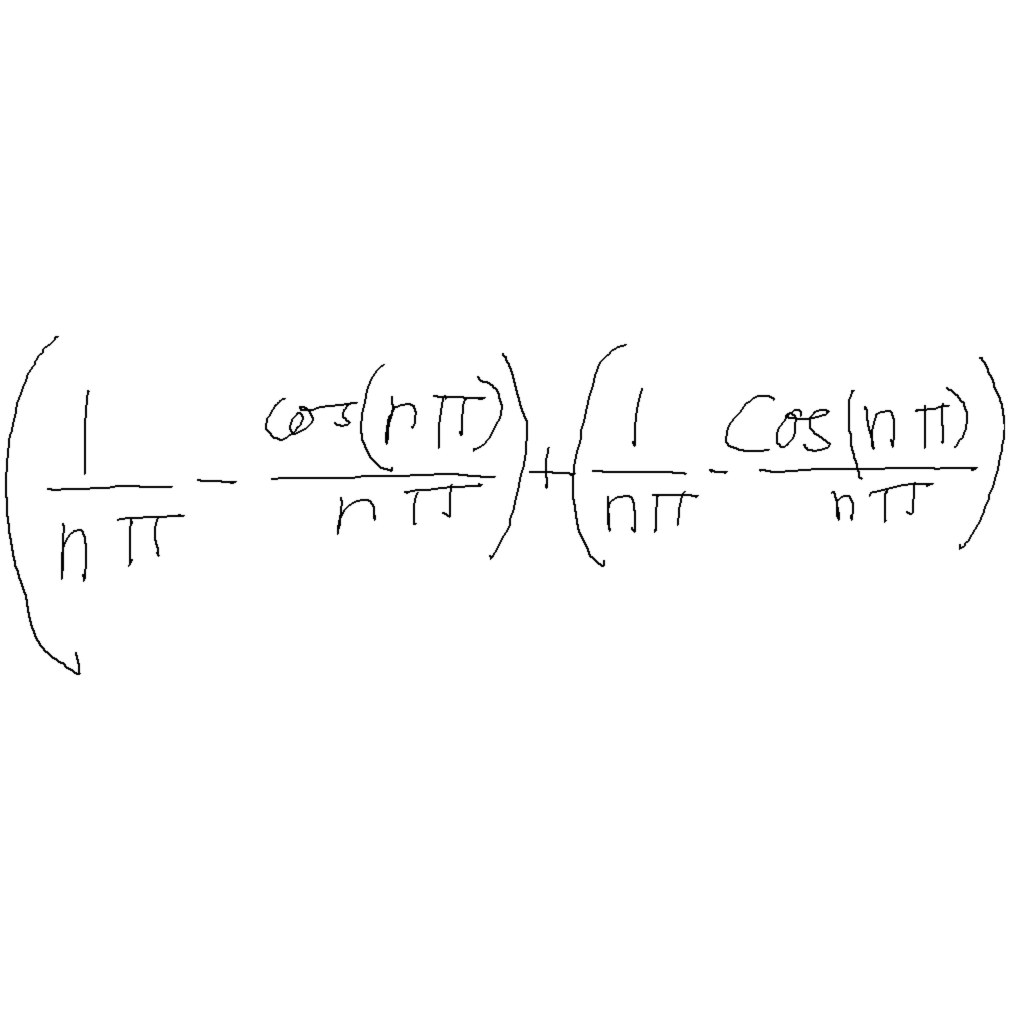 (1/nπ - cos(nπ)/nπ) + (1/nπ - cos(nπ)/nπ)